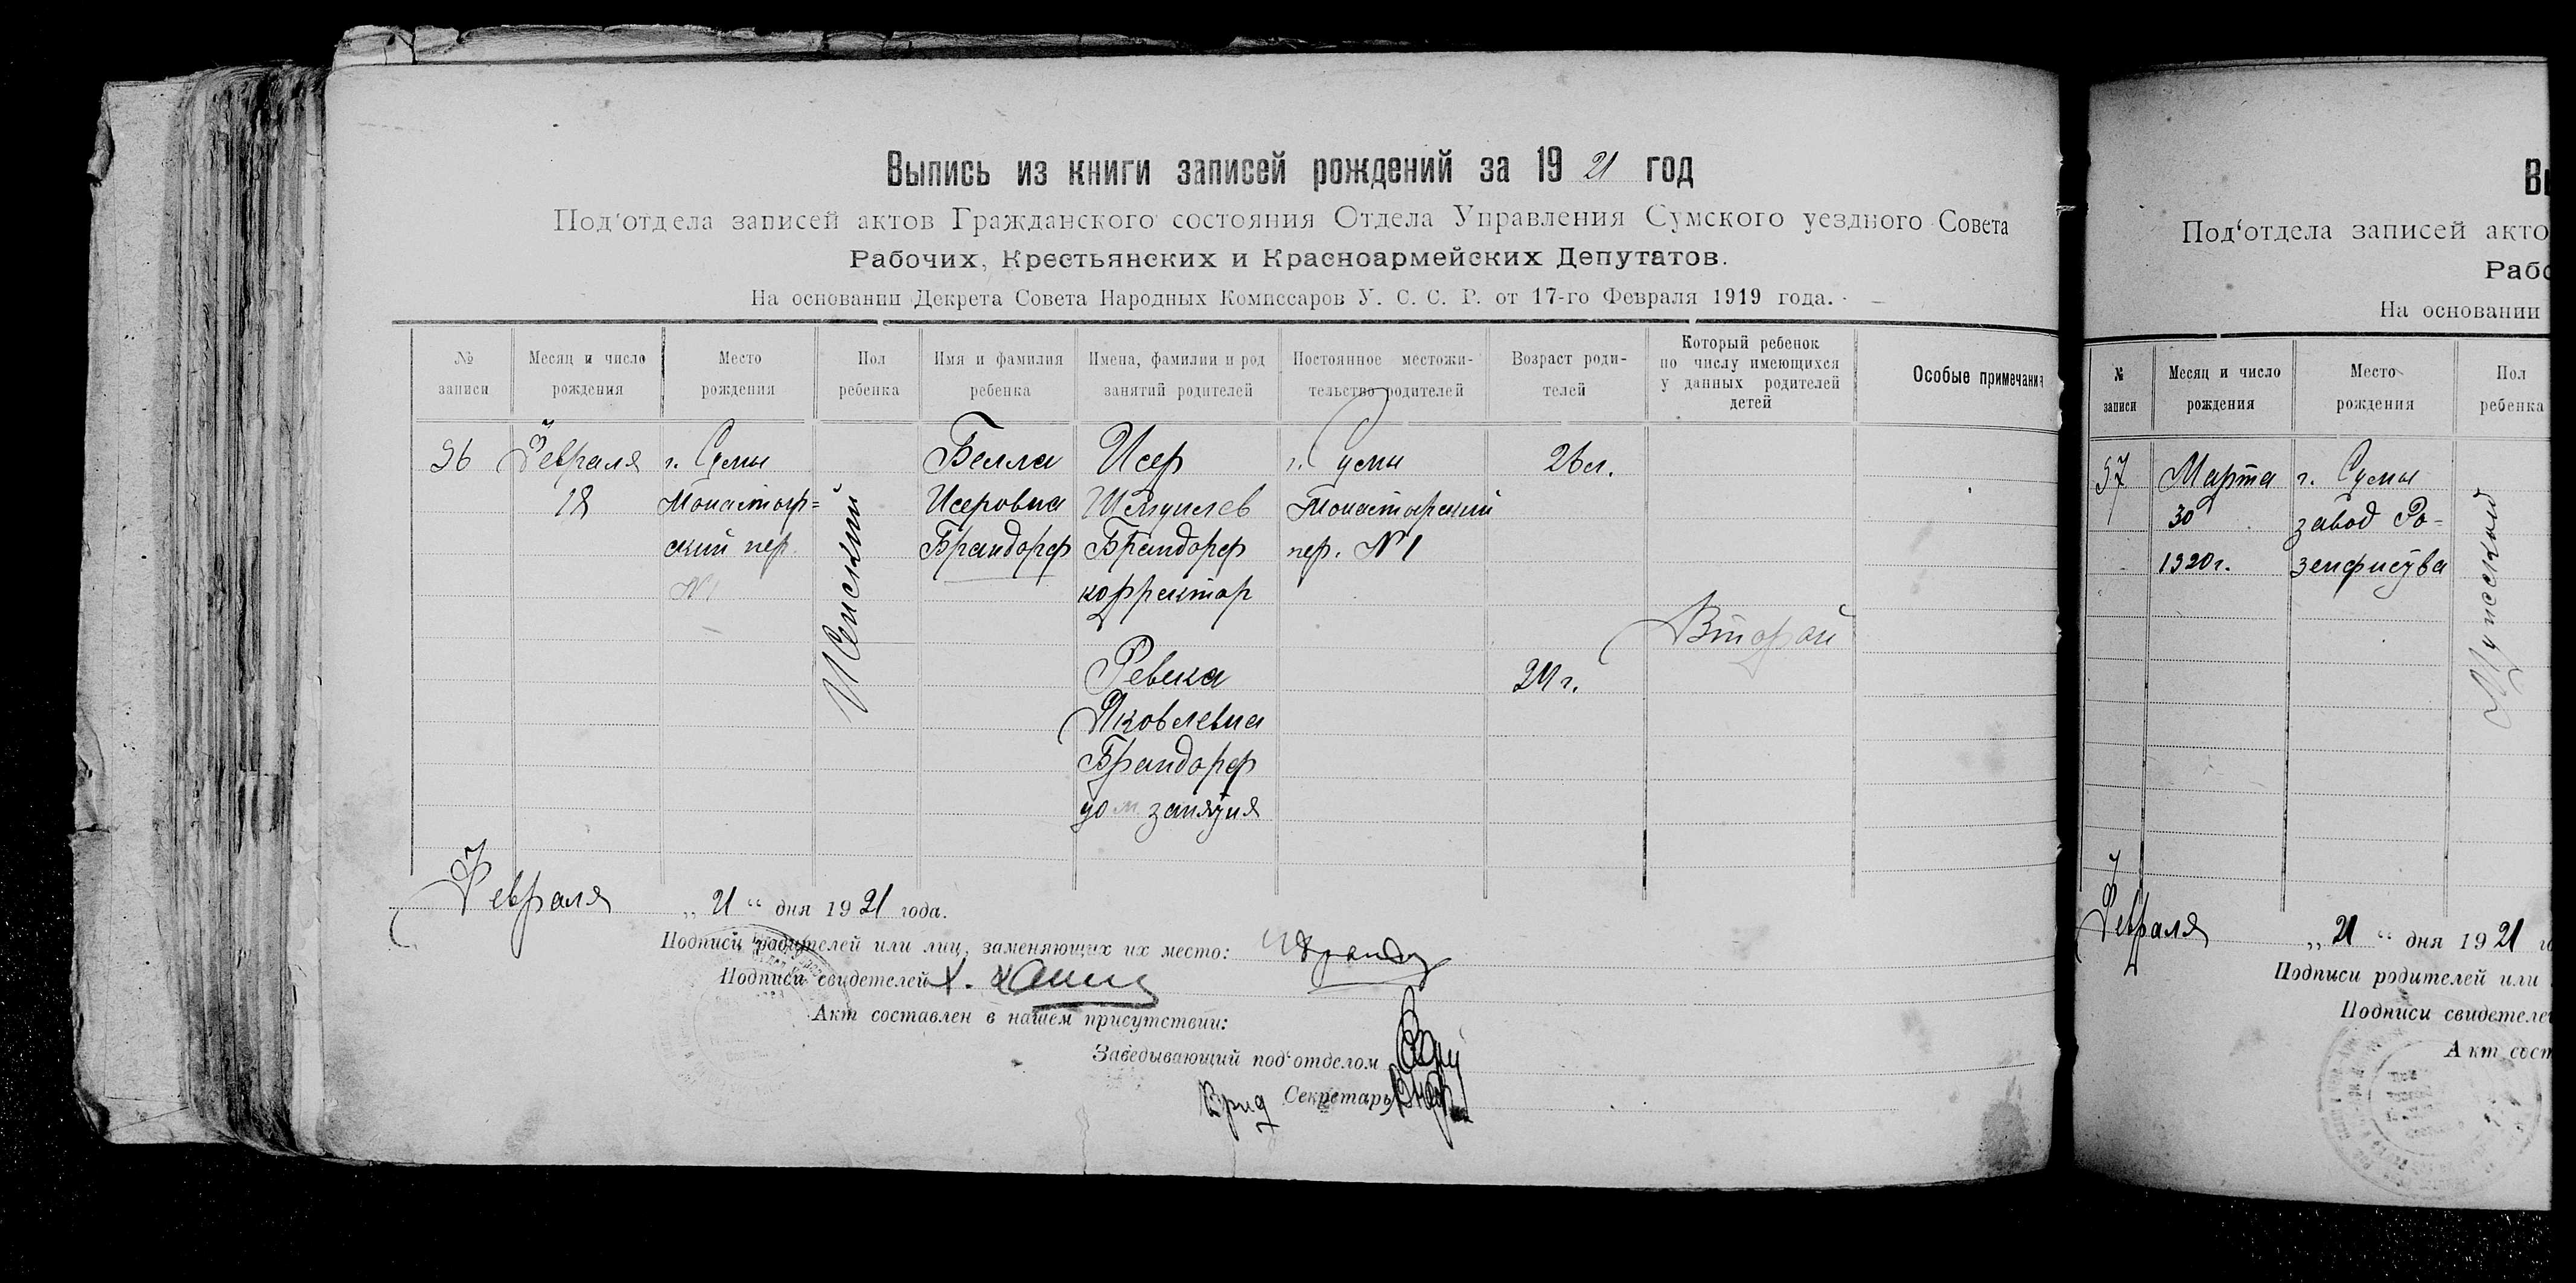 Выпись из книги записей рождений за 1921 год
Под'отдела записей актов Гражданского состояния Отдела Управления Сумского уездного Совета
Рабочих, Крестьянских и Красноармейских Депутатов.
На основании Декрета Совета Народных Комиссаров У. С. С. Р. от 17-го Февраля 1919 года.
№ записи
Месяц и число рождения
Место рождения
Пол ребенка
Имя и фамилия ребенка
Имена, фамилии и род занятий родителей
Постоянное местожительство родителей
Возраст родителей
Который ребенок по числу имеющихся у данных родителей детей
Особые примечания
96
Февраля
18
г. Сумы
Монастыр=
ский пер.
№ 1
Женский
Белла
Исеровна
Брандорф
Исер
Шмулев
Брандорф
корректор
Ревека
Яковлевна
Брандорф
дом. занятия
г. Сумы
Монастырский
пер. № 1
26 л.
24 г.
Второй
Февраля „21“ дня 1921 года.
Подписи родителей или лиц, заменяющих их место:
Подписи свидетелей
Акт составлен в нашем присутствии:
Заведывающий под'отделом
Врид Секретарь
Вы
Под'отдела записей акто
Рабо
На основании
№ записи
Месяц и число рождения
Место рождения
Пол ребенка
97
Марта
30
1920 г.
г. Сумы
завод Ро-
Мужской
Февраля „21“ дня 1921 го
Подписи родителей или
Подписи свидетелей
Акт сост